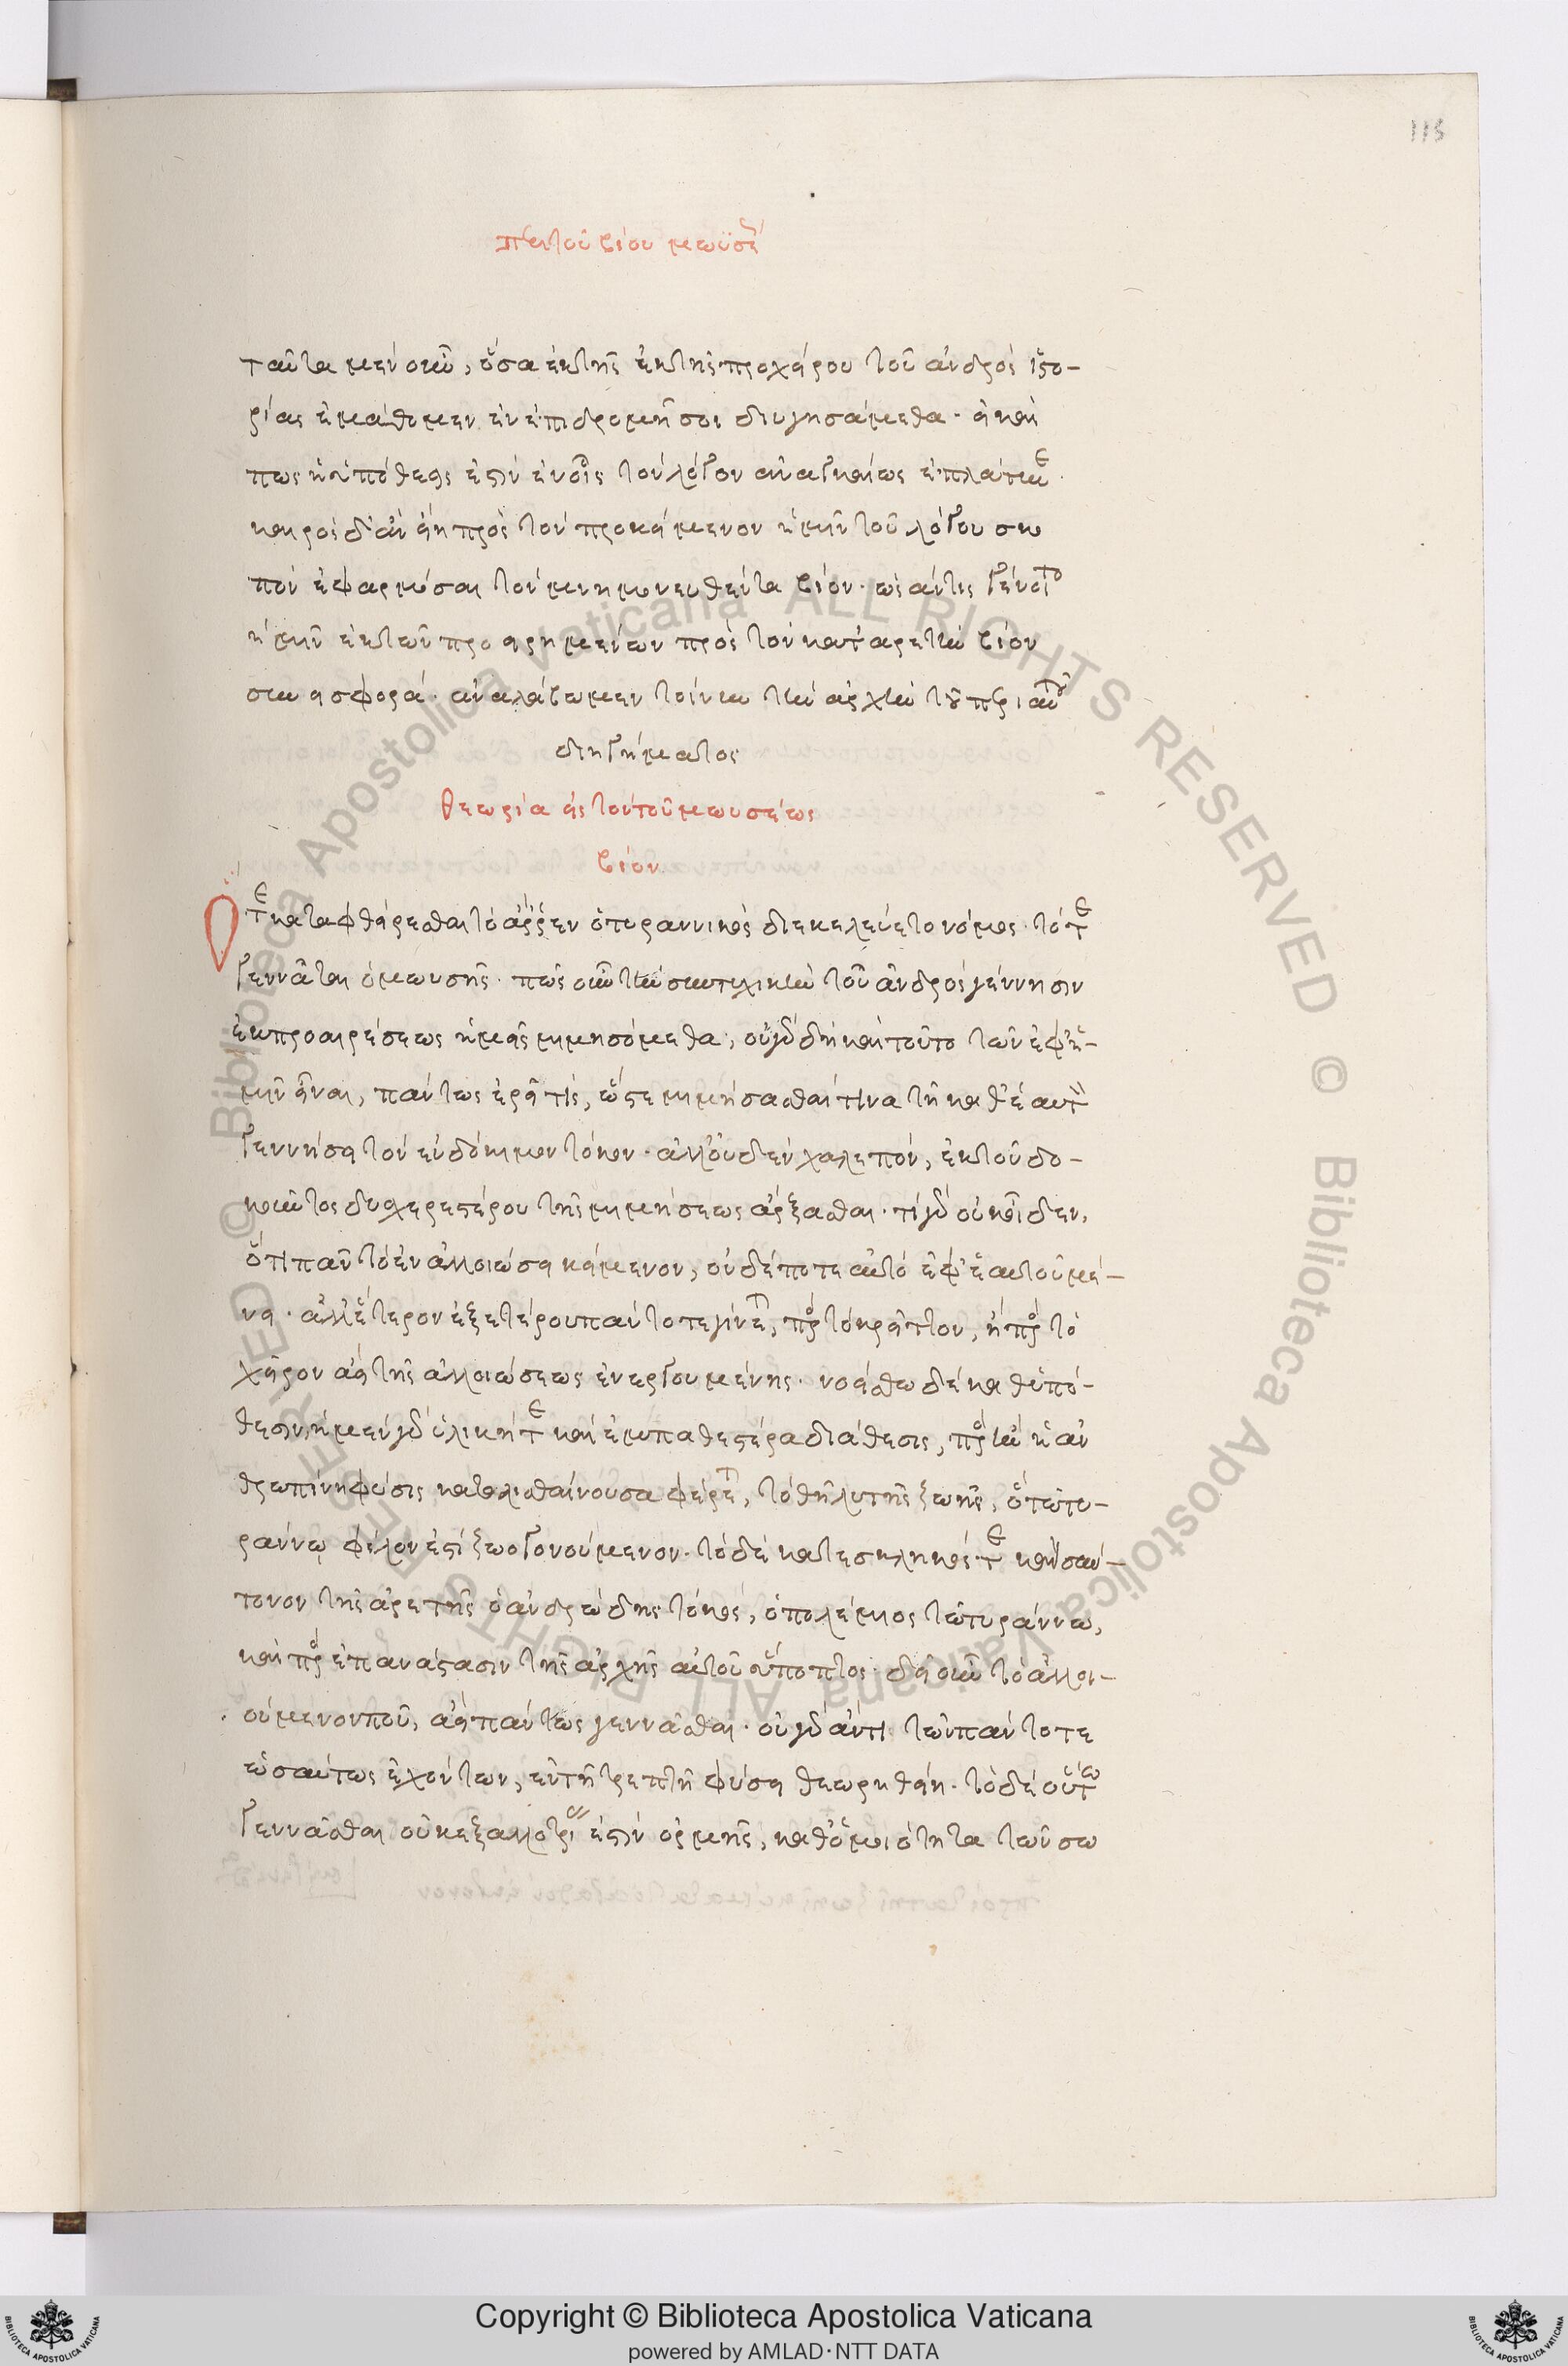 115
περὶ τοῦ βίου μωϋσέ
ταῦτα μὲν οὖν, ὅσα ἐκ τῆς ἐκ τῆς προχείρου τοῦ ἀνδρὸς ἱστο-
ρίας ἐμάθομεν ἐν ἐπιδρομῆ σοι διηγησάμεθα. εἰ καί
πως ἡ ὑπόθεσις ἐστὶν ἐν οἷς τὸν λόγον ἀναγκαίως ἐπλάτυνε.
καιρὸς δ' ἂν εἴη πρὸς τὸν προκείμενον ἡμῖν τοῦ λόγου σκο
πὸν ἐφαρμόσαι τὸν μνημονευθέντα βίον. ὡς ἄν τις γένοιτο
ἡμῖν ἐκ τῶν προειρημένων πρὸς τὸν κατ' ἀρετὴν βίον
συνεισφορά. ἀναλάβωμεν τοίνυν τὴν ἀρχὴν τοῦ περὶ αὐτοῦ
διηγήματος
θεωρία εἰς τὸν τοῦ μωυσέως
βίον
Ὅτε καταφθείρεσθαι τὸ ἄῤῥεν ὁ τυραννικὸς διεκελεύετο νόμος. τότε
γεννᾶται ὁ μωυσῆς. πῶς οὖν τὴν συντυχικὴν τοῦ ἀνδρὸς γέννησιν
ἐκ προαιρέσεως ἡμεῖς μιμησόμεθα; οὐ γὰρ δὴ καὶ τοῦτο τῶν ἐφ' ἡ-
μῖν εἶναι, πάντως ἐρεῖ τις, ὥστε μιμήσασθαί τινα τῆ καθ' ἑαυτὸν
γεννήσει τὸν εὐδόκιμον τόκον. ἀλλ' οὐδὲν χαλεπὸν, ἐκ τοῦ δο-
κοῦντος δυσχερεστέρου τῆς μιμήσεως ἄρξασθαι. τίς γὰρ οὐκ οἶδεν,
ὅτι πᾶν τὸ ἐν ἀλλοιώσει κείμενον, οὐδέποτε αὐτὸ ἐφ' ἑαυτοῦ μέ-
νει. ἀλλ' ἕτερον ἐξ ἑτέρου πάντοτε γίνεται, πρὸς τὸ κρεῖττον, ἢ πρὸς τὸ
χεῖρον ἀεὶ τῆς ἀλλοιώσεως ἐνεργουμένης. νοείσθω δὲ καθ' ὑπό-
θεσιν, ἡ μὲν γὰρ ὑλική τε καὶ ἐμπαθεστέρα διάθεσις, πρὸς ἣν ἡ ἀν
θρωπίνη φύσις κατολισθαίνουσα φέρεται, τὸ θῆλυ τῆς ζωῆς, ὃ τῶ τυ-
ράννω φίλον ἐστὶ ζωογονούμενον. τὸ δὲ κατεσκληκός τε καὶ σύν-
τονον τῆς ἀρετῆς ὁ ἀνδρώδης τόκος, ὁ πολέμιος τῶ τυράννω,
καὶ πρὸς ἐπανάστασιν τῆς ἀρχῆς αὐτοῦ ὕποπτος. δεῖ οὖν τὸ ἀλλοι-
ούμενόν που, ἀεὶ πάντως γεννᾶσθαι. οὐ γὰρ ἄν τι τῶν πάντοτε
ὡσαύτως ἐχόντων, ἐν τῆ τρεπτῆ φύσει θεωρηθείη. τὸ δὲ οὕτω
γεννᾶσθαι οὐκ ἐξ ἀλλοτρίας ἐστὶν ὁρμῆς, καθ' ὁμοιότητα τῶν σω